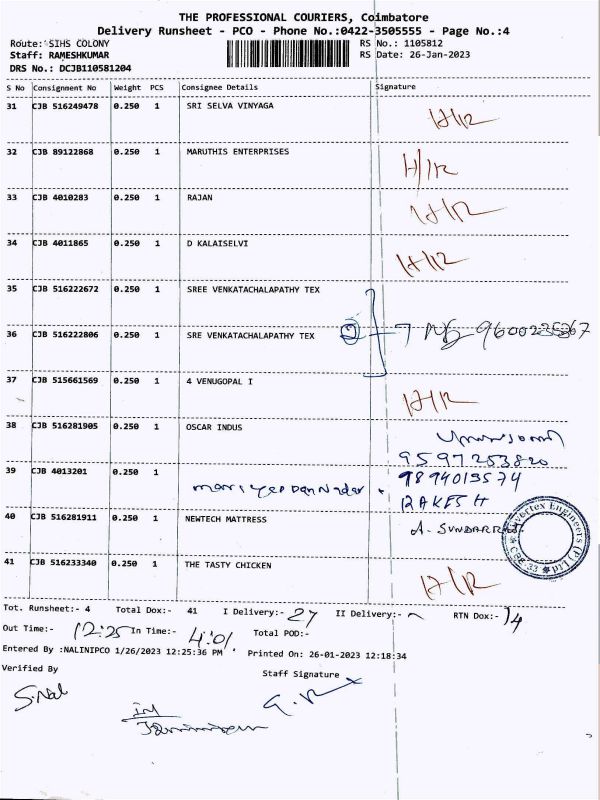 THE PROFESSIONAL COURIERS, Coimbatore
Delivery Runsheet - PCO - Phone No.:0422-3505555 - Page No.:4
Route: SIHS COLONY RS No.: 1105812
Staff: RAMESHKUMAR RS Date: 26-Jan-2023
DRS No.: DCJB110581204
S No Consignment No Weight PCS Consignee Details Signature
31 CJB 516249478 0.250 1 SRI SELVA VINYAGA
32 CJB 89122868 0.250 1 MARUTHIS ENTERPRISES
33 CJB 4010283 0.250 1 RAJAN
34 CJB 4011865 0.250 1 D KALAISELVI
35 CJB 516222672 0.250 1 SREE VENKATACHALAPATHY TEX
36 CJB 516222806 0.250 1 SRE VENKATACHALAPATHY TEX
37 CJB 515661569 0.250 1 4 VENUGOPAL I
38 CJB 516281905 0.250 1 OSCAR INDUS
9597253820
39 CJB 4013201 0.250 1 9894013574
RAKESH
40 CJB 516281911 0.250 1 NEWTECH MATTRESS A. SUNDARRAJ
41 CJB 516233340 0.250 1 THE TASTY CHICKEN
Tot. Runsheet:- 4 Total Dox:- 41 I Delivery:- 27 II Delivery:- RTN Dox:- 14
Out Time:- 12:25 In Time:- 4:01 Total POD:-
Entered By :NALINIPCO 1/26/2023 12:25:36 PM Printed On: 26-01-2023 12:18:34
Verified By Staff Signature